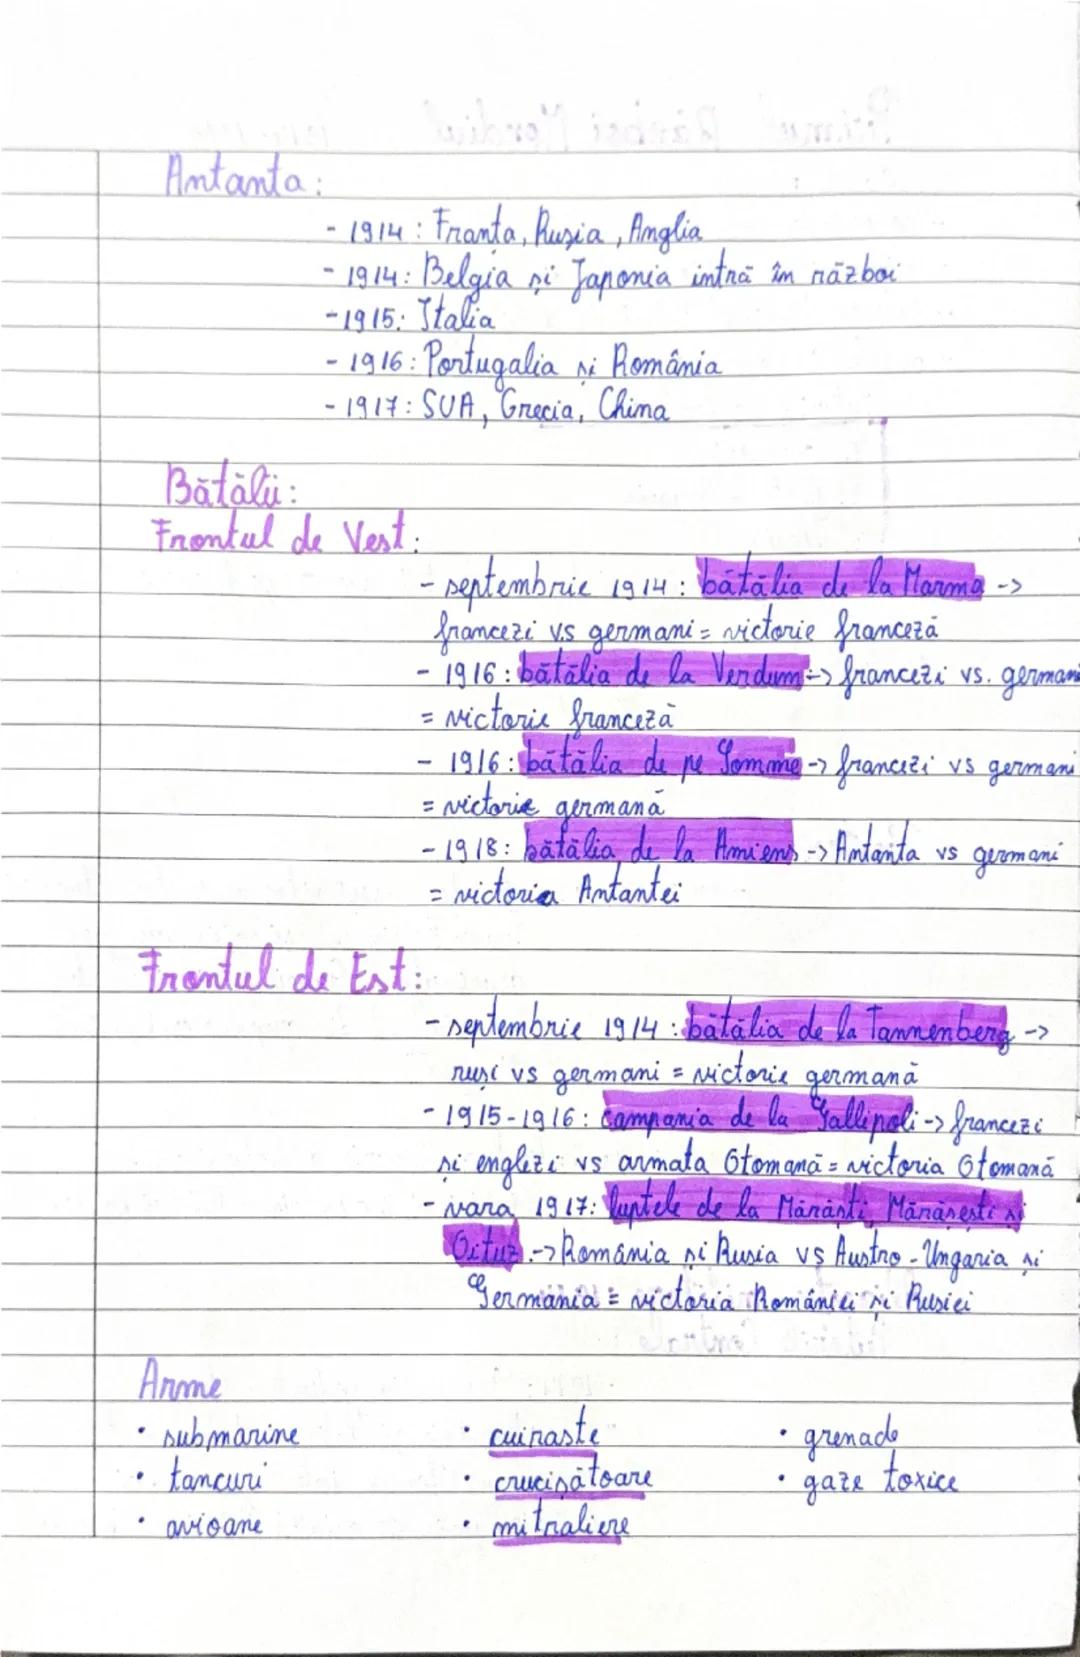 Antanta:
- 1914: Franța, Rusia, Anglia
- 1914: Belgia și Japonia intră în război
- 1915: Italia
- 1916: Portugalia și România
- 1917: SUA, Grecia, China
Bătălii:
Frontul de Vest:
- septembrie 1914: bătălia de la Marna ->
francezi v.s germani = victorie franceză
- 1916: bătălia de la Verdum -> francezi vs. germani
= victorie franceză
- 1916: bătălia de pe Somme -> francezi vs germani
= victorie germană
- 1918: bătălia de la Amiens -> Antanta vs germani
= victoria Antantei
Frontul de Est:
- septembrie 1914: bătălia de la Tannenberg ->
ruși vs germani = victorie germană
- 1915-1916: campania de la Gallipoli -> francezi
și englezi vs armata Otomană = victoria Otomană
- vara 1917: luptele de la Mărăști, Mărășești și
Oituz -> România și Rusia vs Austro-Ungaria și
Germania = victoria României și Rusiei
Arme
• submarine • cuiraste • grenade
• tancuri • crucișătoare • gaze toxice
• avioane • mitraliere